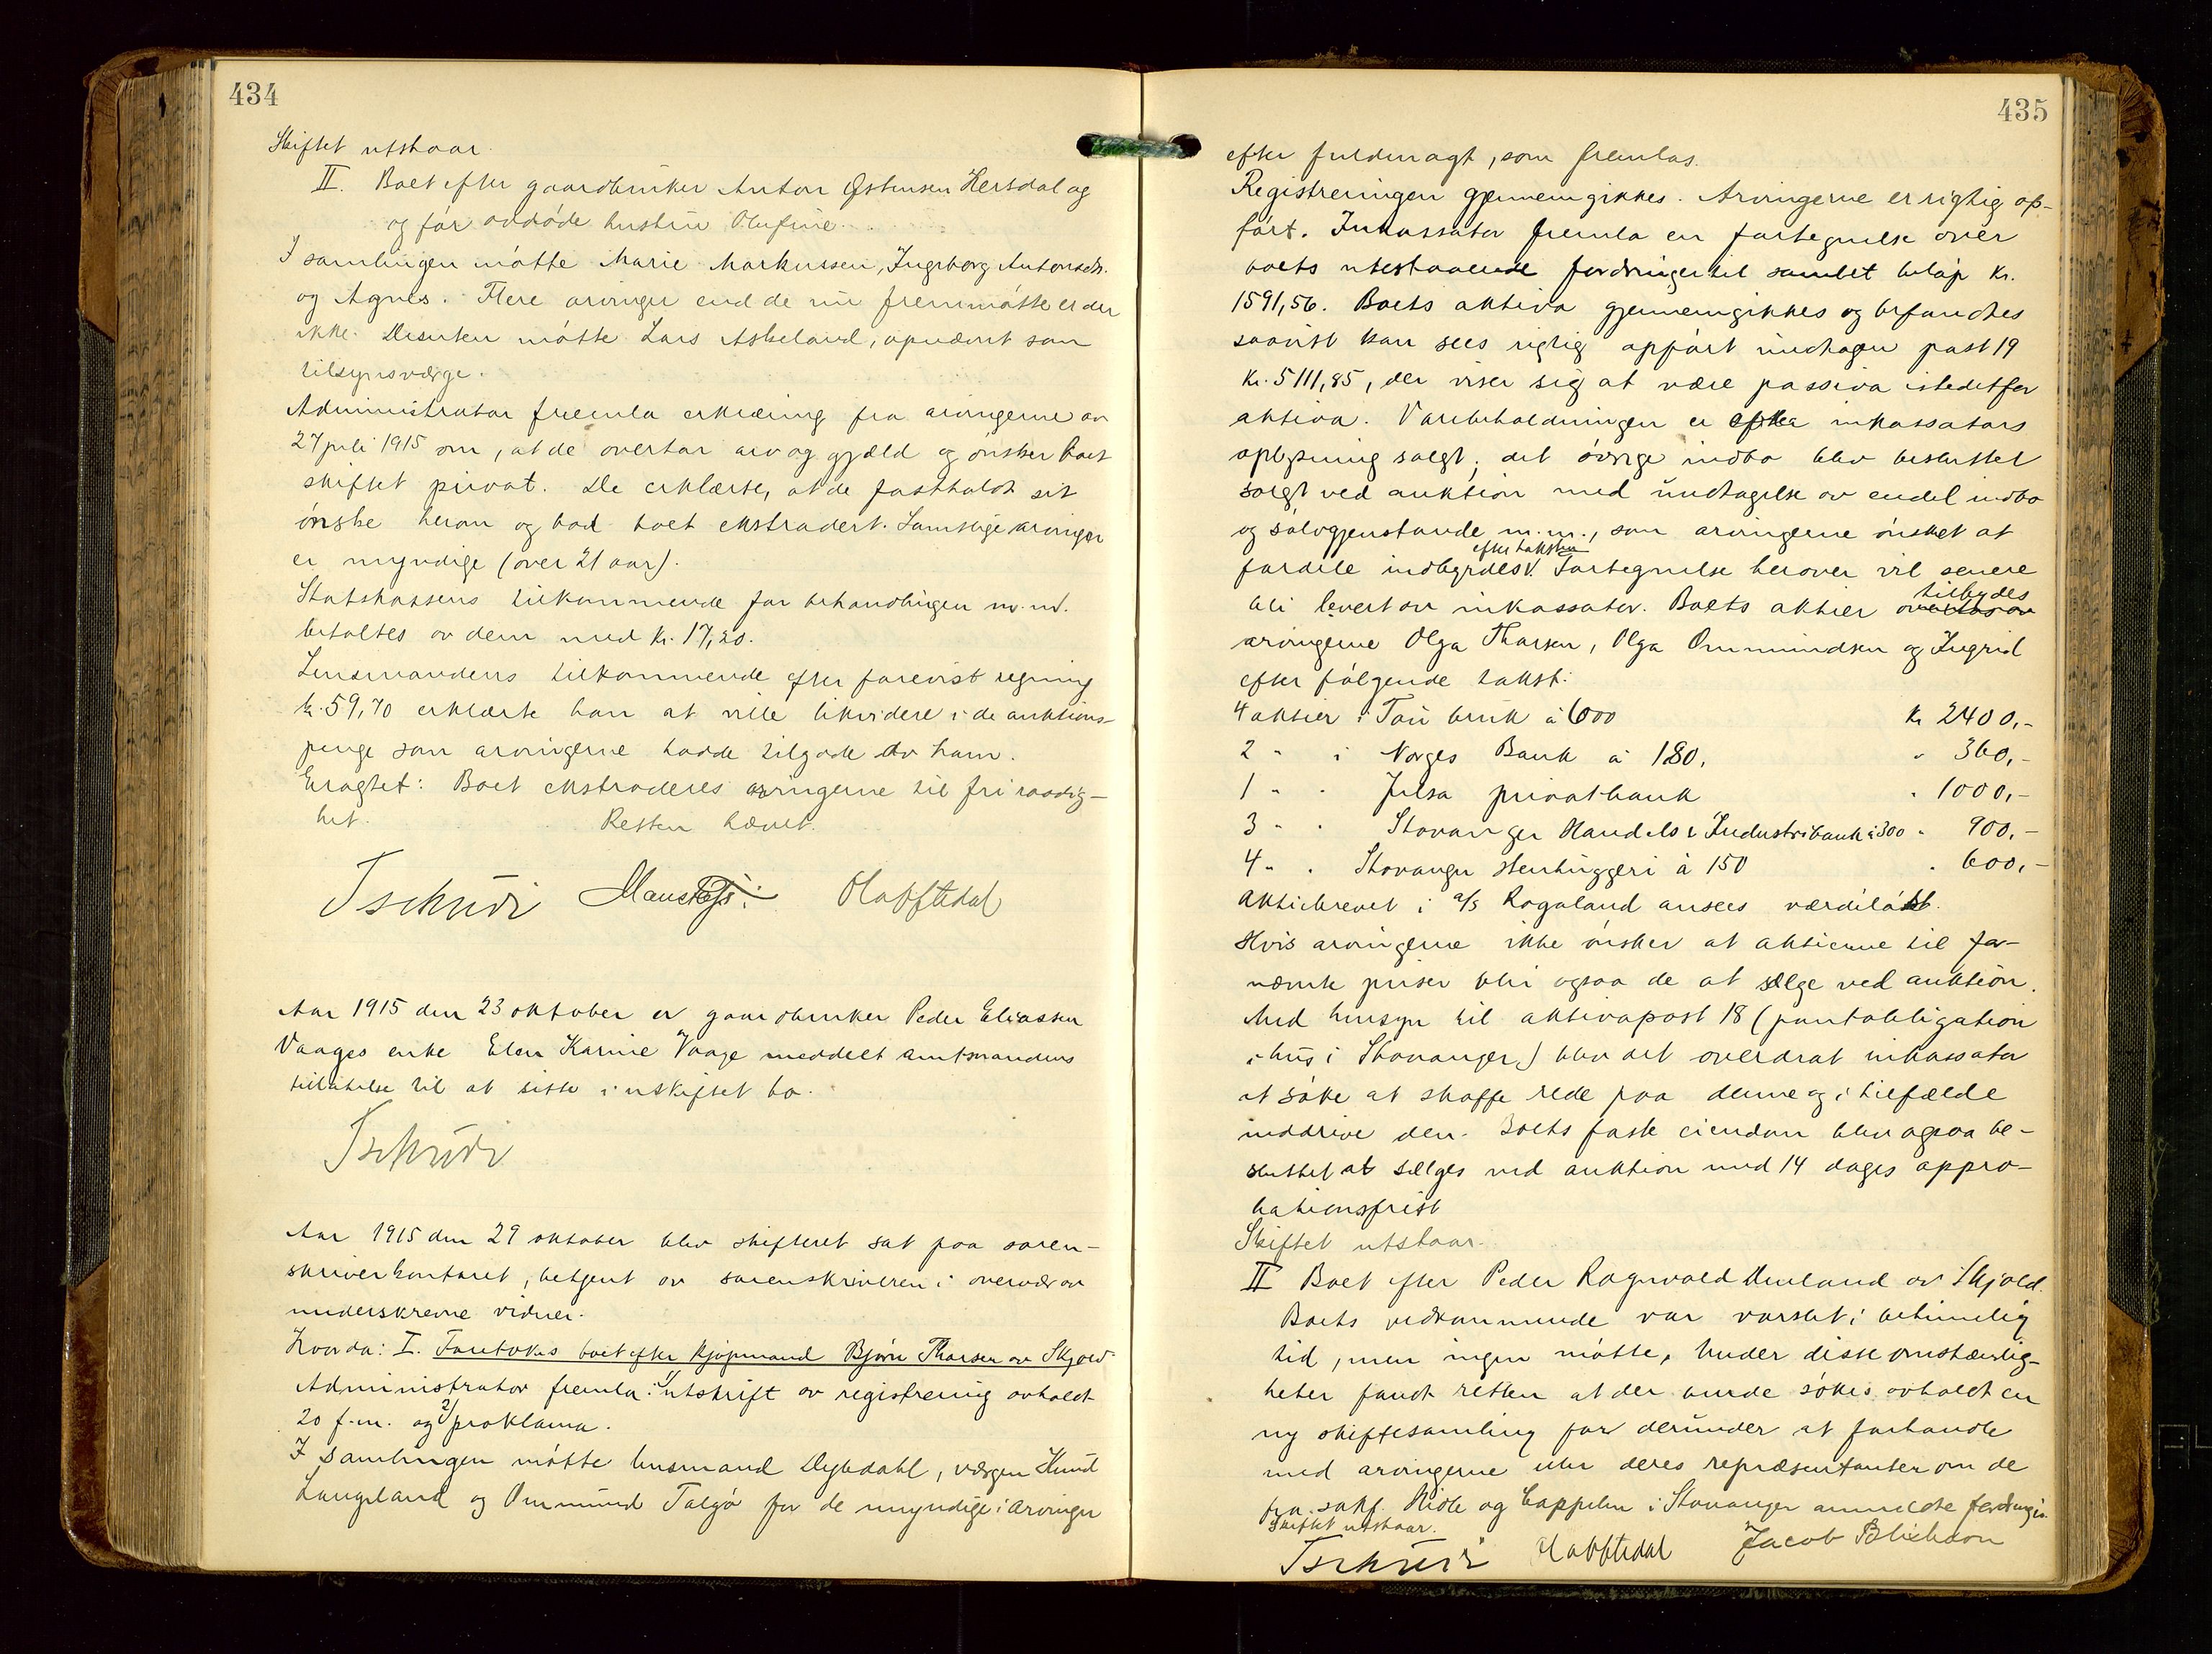 434
Skiftet utstaar.
II. Boet efter gaardbruker Anton Østensen Hersdal og
og før avdøde hustru Olufine.
I samlingen møtte Marie Markussen, Ingeborg Antonsdtr.
og Agnes. Flere arvinger end de nu fremmøtte er der
ikke. Desuten møtte Lars Askeland, opnævnt som
tilsynsværge.
Administrator fremla erklæring fra arvingerne av
27 juli 1915 om, at de overtar arv og gjæld og ønsker boet
skiftet privat. De erklærte, at de fastholdt sit
ønske herom og bad boet ekstradert. Samtlige arvinger
er myndige (over 21 aar).
Statskassens tilkommende for behandlingen m.m.
betaltes av dem med kr. 17,20.
Lensmandens tilkommende efter forevist regning
kr. 59,70 erklærte han at ville likvidere i de auktions-
penge som arvingerne hadde tilgode av ham.
Eragtet: Boet ekstraderes arvingerne til fri raadig-
het. Retten hævet.
Tschudi Olafftedal
Aar 1915 den 23 oktober er gaardbruker Peder Eliassen
Vaages enke Elen Karine Vaage meddelt amtmandens
tillatelse til at sitte i uskiftet bo.
Tschudi
Aar 1915 den 29 oktober blev skifteret sat paa soren-
skriverkontoret, betjent av sorenskriveren i overvær av
underskrevne vidner.
Hvorda: I. Foretokes boet efter kjøpmand Bjørn Thorsen av Skjold
Administrator fremla: 1) utskrift av registrering avholdt
20 f.m. og 2) proklama.
I samlingen møtte lensmand Dybdahl, værgen Knud
Langeland og Ommund Talgø for de umyndige arvinger
435
efter fuldmagt, som fremlas.
Registreringen gjennemgikkes. Arvingerne er rigtig op-
ført. Inkassator fremla en fortegnelse over
boets utestaaende fordringer til samlet beløp kr.
1591,56. Boets aktiva gjennemgikkes og befandtes
saavist kan sees rigtig opført undtagen post 19
kr. 5111,85, der viser sig at være passiva istedetfor
aktiva. Varebeholdningen er efter inkassators
oplysning solgt; det øvrige indbo blev besluttet
solgt ved auktion med undtagelse av endel indbo
og sølvgjenstande m.m., som arvingerne ønsket at
fordele indbyrdes efter taksten. Fortegnelse herover vil senere
bli levert av inkassator. Boets aktier overtas av tilbydes
arvingerne Olga Thorsen, Olga Ommundsen og Ingrid
efter følgende takst:
4 aktier i Tau bruk á 600 kr 2400,-
2 " i Norges Bank á 180, " 360,-
1 " " Jelsa privatbank " 1000,-
3 " " Stavanger Handels & Industribank á 300 " 900,-
4 " " Stavanger Stenhuggeri á 150 " 600,-
Aktiebrevet i a/s Rogaland ansees værdiløst.
Hvis arvingerne ikke ønsker at aktierne til for-
nævnte priser blir ogsaa de at sælge ved auktion.
Med hensyn til aktivapost 18 (pantobligation
i hus i Stavanger) blev det overdrat inkassator
at søke at skaffe rede paa denne og i tilfælde
inddrive den. Boets faste eiendom blev ogsaa be-
sluttet at sælges ved auktion med 14 dages appro-
bationsfrist
Skiftet utstaar.
II Boet efter Peder Ragnvald Omland av Skjold.
Boets vedkommende var varslet i betimelig
tid, men ingen møtte, under disse omstændig-
heter fandt retten at der burde søkes avholdt en
ny skiftesamling for derunder at forhandle
med arvingerne eller deres repræsentanter om de
fra sakf. Hidle og Cappelen i Stavanger anmeldte fordringer.
Skiftet utstaar.
Tschudi Olafftedal Jacob Blikdom